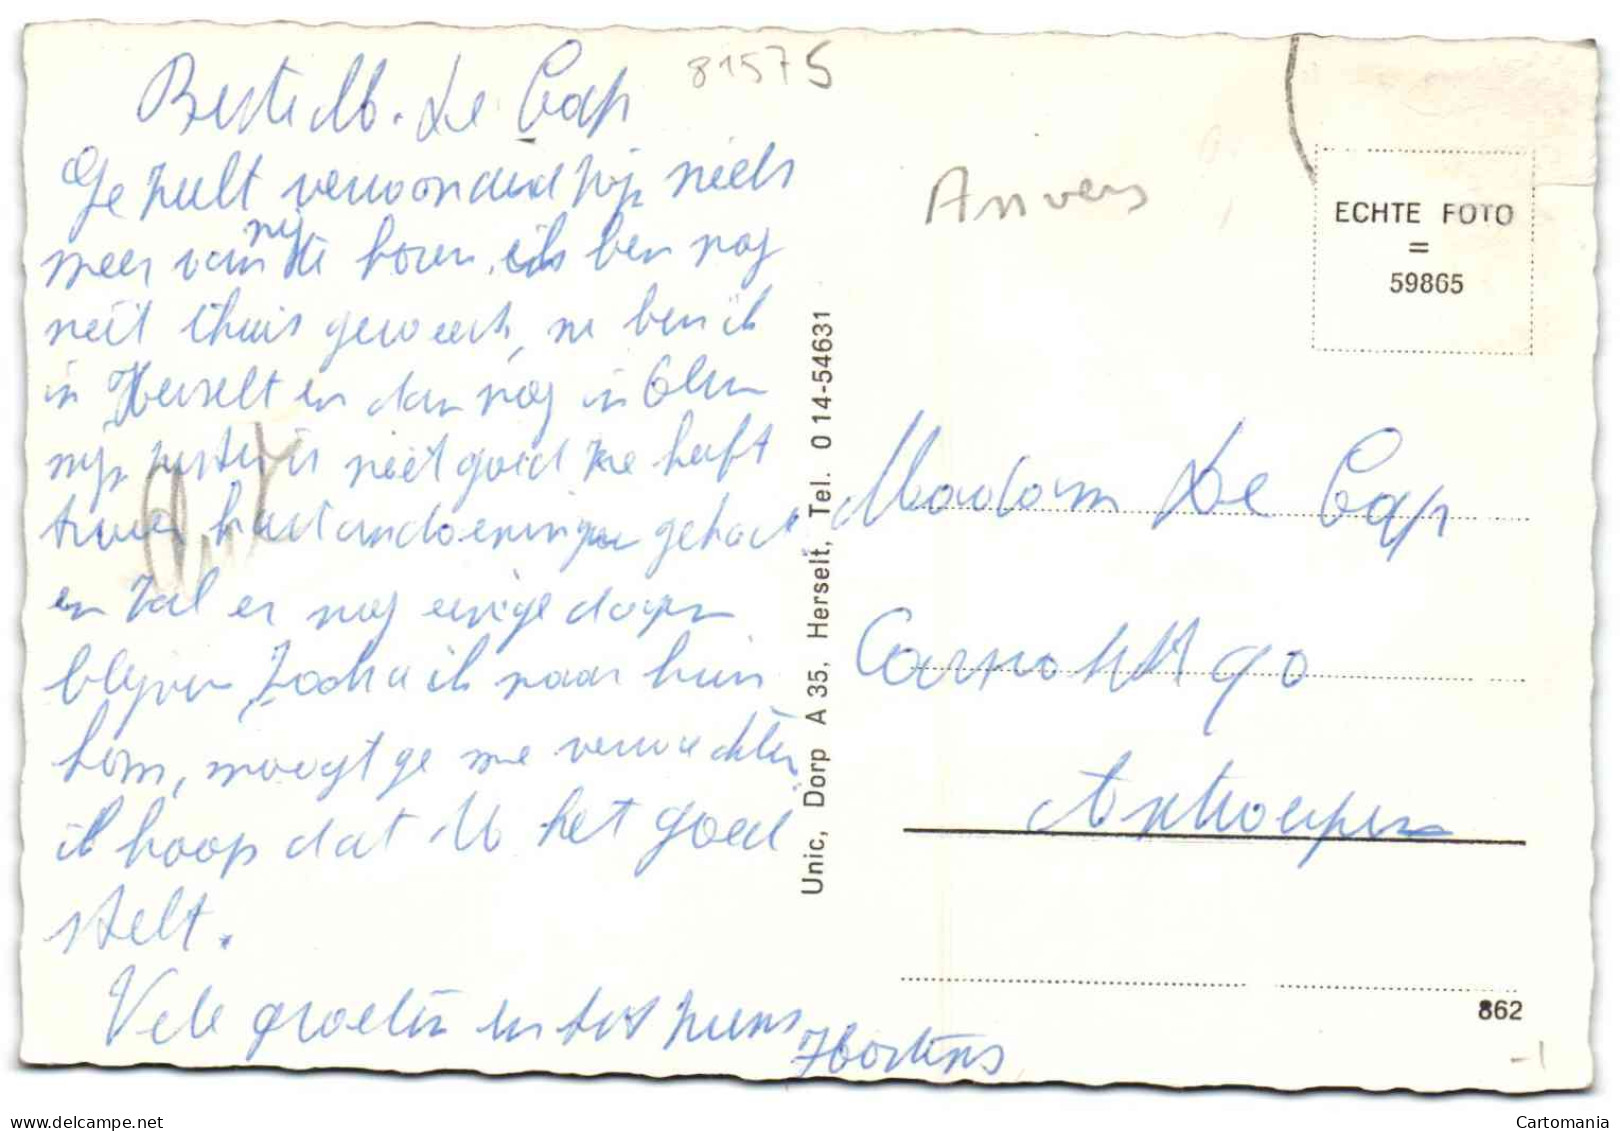 81575
Beste M. De Cap
Ge zult verwonderd zijn niets
meer van mij te horen, ik ben nog
niet thuis geweest, nu ben ik
in Herselt en dan nog in Olen
mijn zuster is niet goed ze heeft
twee hartandoeningen gehad
en zal er nog enige dagen
blijven Zodra ik naar huis
kom, moogt ge me verwachten
ik hoop dat U het goed
stelt.
Vele groeten en tot ziens
Hortens
Unic, Dorp A 35, Herselt, Tel. 014-54631
Anvers
ECHTE FOTO
=
59865
Madam De Cap
Carnotstr 90
Antwerpen
862
-1
Cartomania